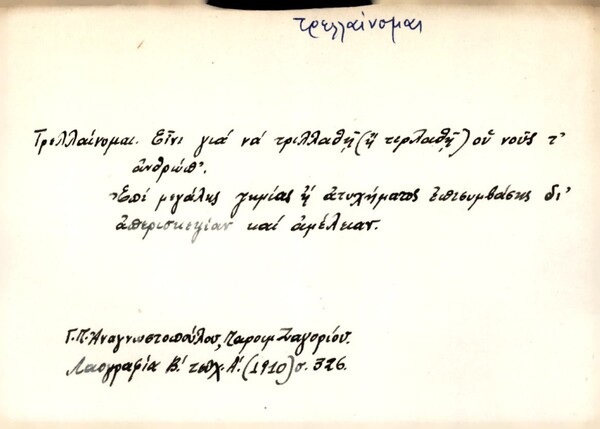 τρελλαίνομαι
Τρελλαίνομαι. Εἶνι γιά νά τριλλαθῇ (ἤ τερλαθῇ) οὗ νοῦς τ'
ἀνθρώπ'.
Ἐπί μεγάλης ζημίας ἤ ἀτυχήματος ἐπισυμβάσης δι'
ἀπερισκεψίαν καί ἀμέλειαν.
Γ.Π. Ἀναγνωστοπούλου, Παροιμ. Ζαγορίου.
Λαογραφία Β΄. τεῦχ. Α΄. (1910) σ. 326.